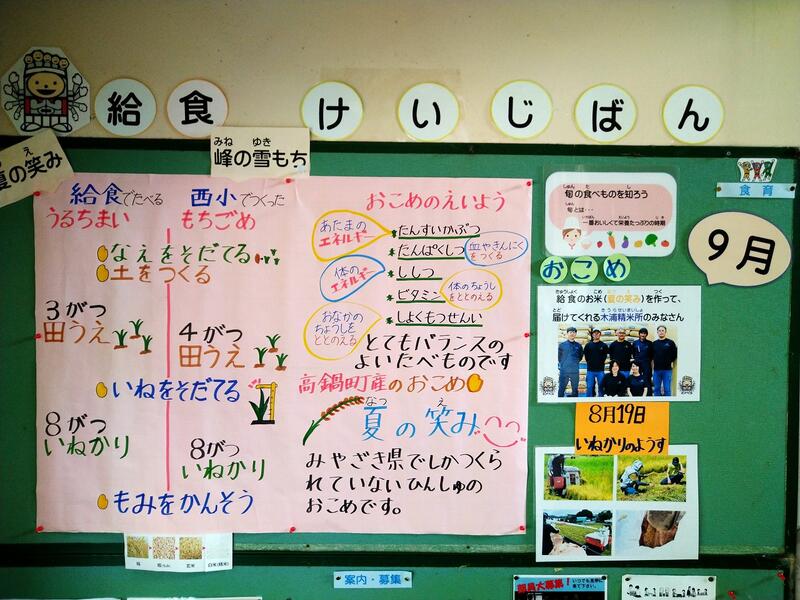 給食 けいじばん
夏の笑み
え
みね ゆき
峰の雪もち
給食でたべる
うるちまい
西小でつくった
もちごめ
なえをそだてる
土をつくる
3がつ
田うえ
4がつ
田うえ
いねをそだてる
8がつ
いねかり
8がつ
いねかり
もみをかんそう
おこめのえいよう
あたまの
エネルギー
たんすいかぶつ
たんぱくしつ
血やきんにく
をつくる
体の
エネルギー
ししつ
ビタミン
体のちょうし
をととのえる
おなかの
ちょうしを
ととのえる
しょくもつせんい
とてもバランスの
よいたべものです
高鍋町産のおこめ
なつ え
夏の笑み
みやざき県でしかつくら
れていないひんしゅの
おこめです。
しゅん た し
旬の食べものを知ろう
旬とは…
一番おいしくて栄養たっぷりの時期
食育
9月
おこめ
きゅうしょく なつ え つく
給食のお米(夏の笑み)を作って、
とど
届けてくれる木浦精米所のみなさん
8月19日
いねかりのようす
玄米
案内・募集